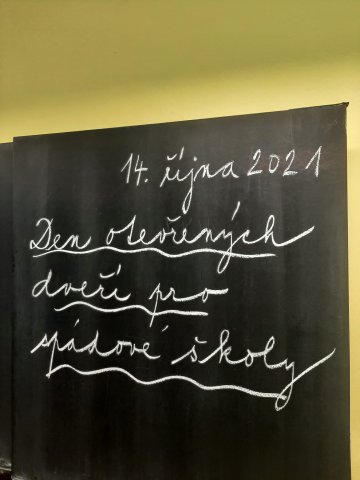 14. října 2021
Den otevřených
dveří pro
spádové školy